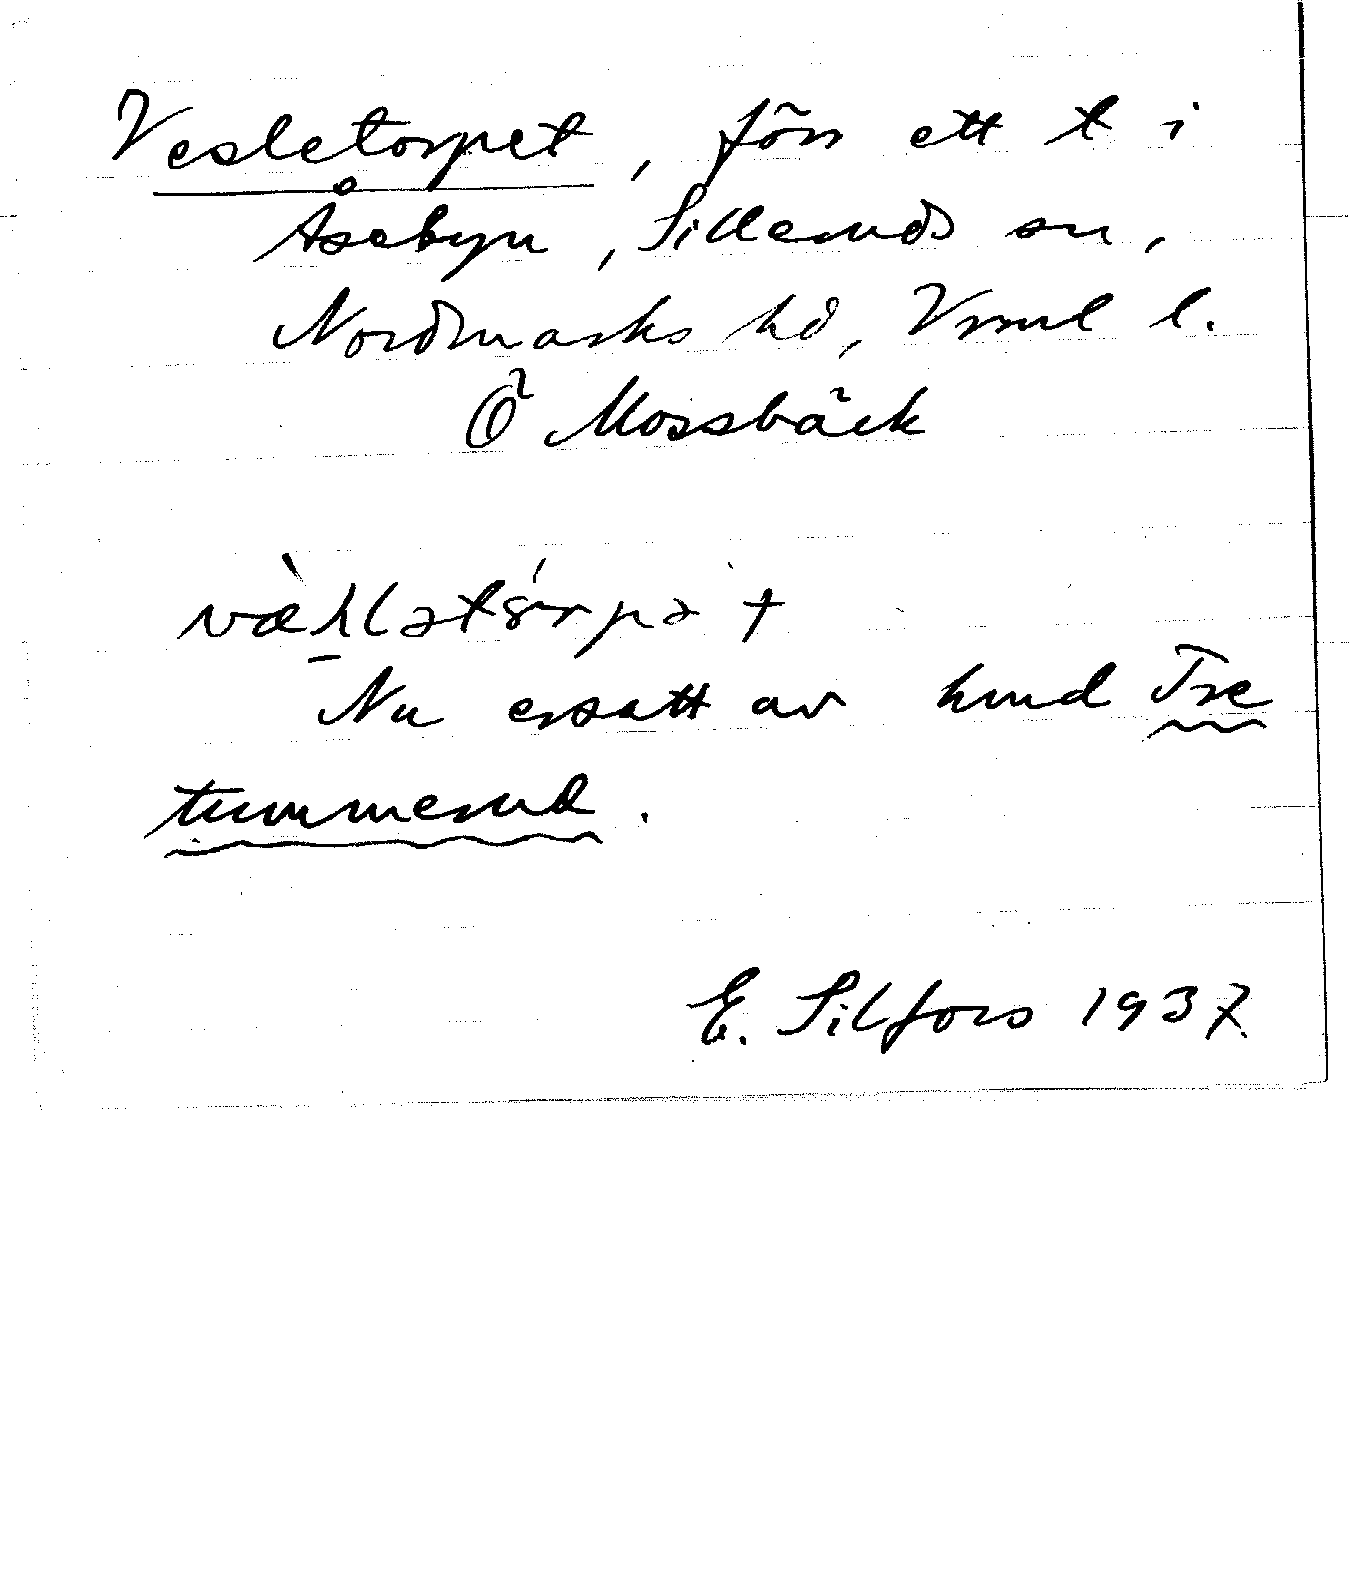 Vesletorpet, förr ett t i
Åsebyn, Silleruds sn,
Nordmarks hd, Vrml l.
Ö Mossbäck
Nu ersatt av hmd Tre
tummerud.
E. Silfors 1937